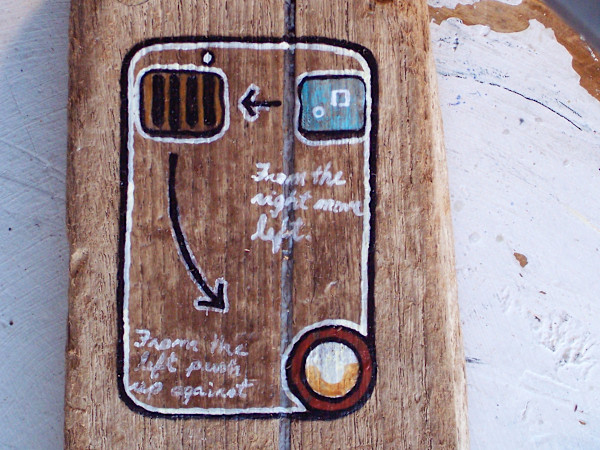 From the
right move
left.
From the
left push
up against